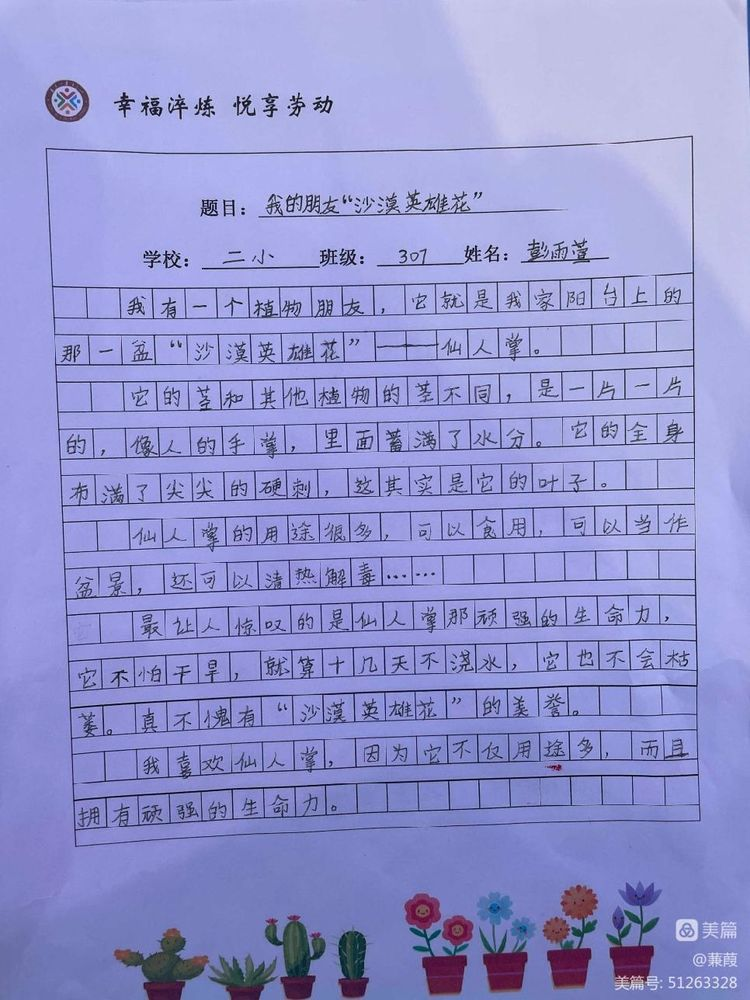 幸福淬炼 悦享劳动
题目：我的朋友“沙漠英雄花”
学校：二小 班级：307 姓名：彭雨萱
我有一个植物朋友，它就是我家阳台上的
那一盆“沙漠英雄花”——仙人掌。
它的茎和其他植物的茎不同，是一片一片
的，像人的手掌，里面蓄满了水分。它的全身
布满了尖尖的硬刺，这其实是它的叶子。
仙人掌的用途很多，可以食用，可以当作
盆景，还可以清热解毒……
最让人惊叹的是仙人掌那顽强的生命力，
它不怕干旱，就算十几天不浇水，它也不会枯
萎。真不愧有“沙漠英雄花”的美誉。
我喜欢仙人掌，因为它不仅用途多，而且
拥有顽强的生命力。
美篇
@蒹葭
美篇号: 51263328